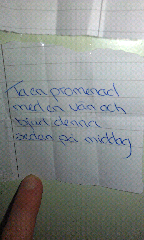 Ta en promenad
med en vän och
bjud denna
sedan på middag